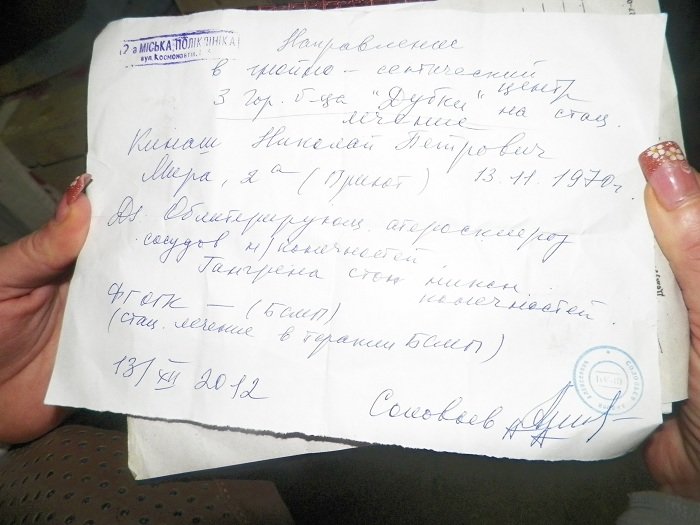 2-а МІСЬКА ПОЛІКЛІНІКА
вул. Космонавтів,
Направление
в гнойно-септический
центр
3 гор. б-ца "Дубки" на стац.
лечение
Кинаш Николай Петрович
Мира, 2а (Приют) 13.11.1970г.
Ds. Облитерирующ. атеросклероз
сосудов н/конечностей
Гангрена стоп нижн.
конечностей.
ФГОГК — (БСМП)
(стац. лечение в терапии БСМП)
13/XII 2012
Соловьев